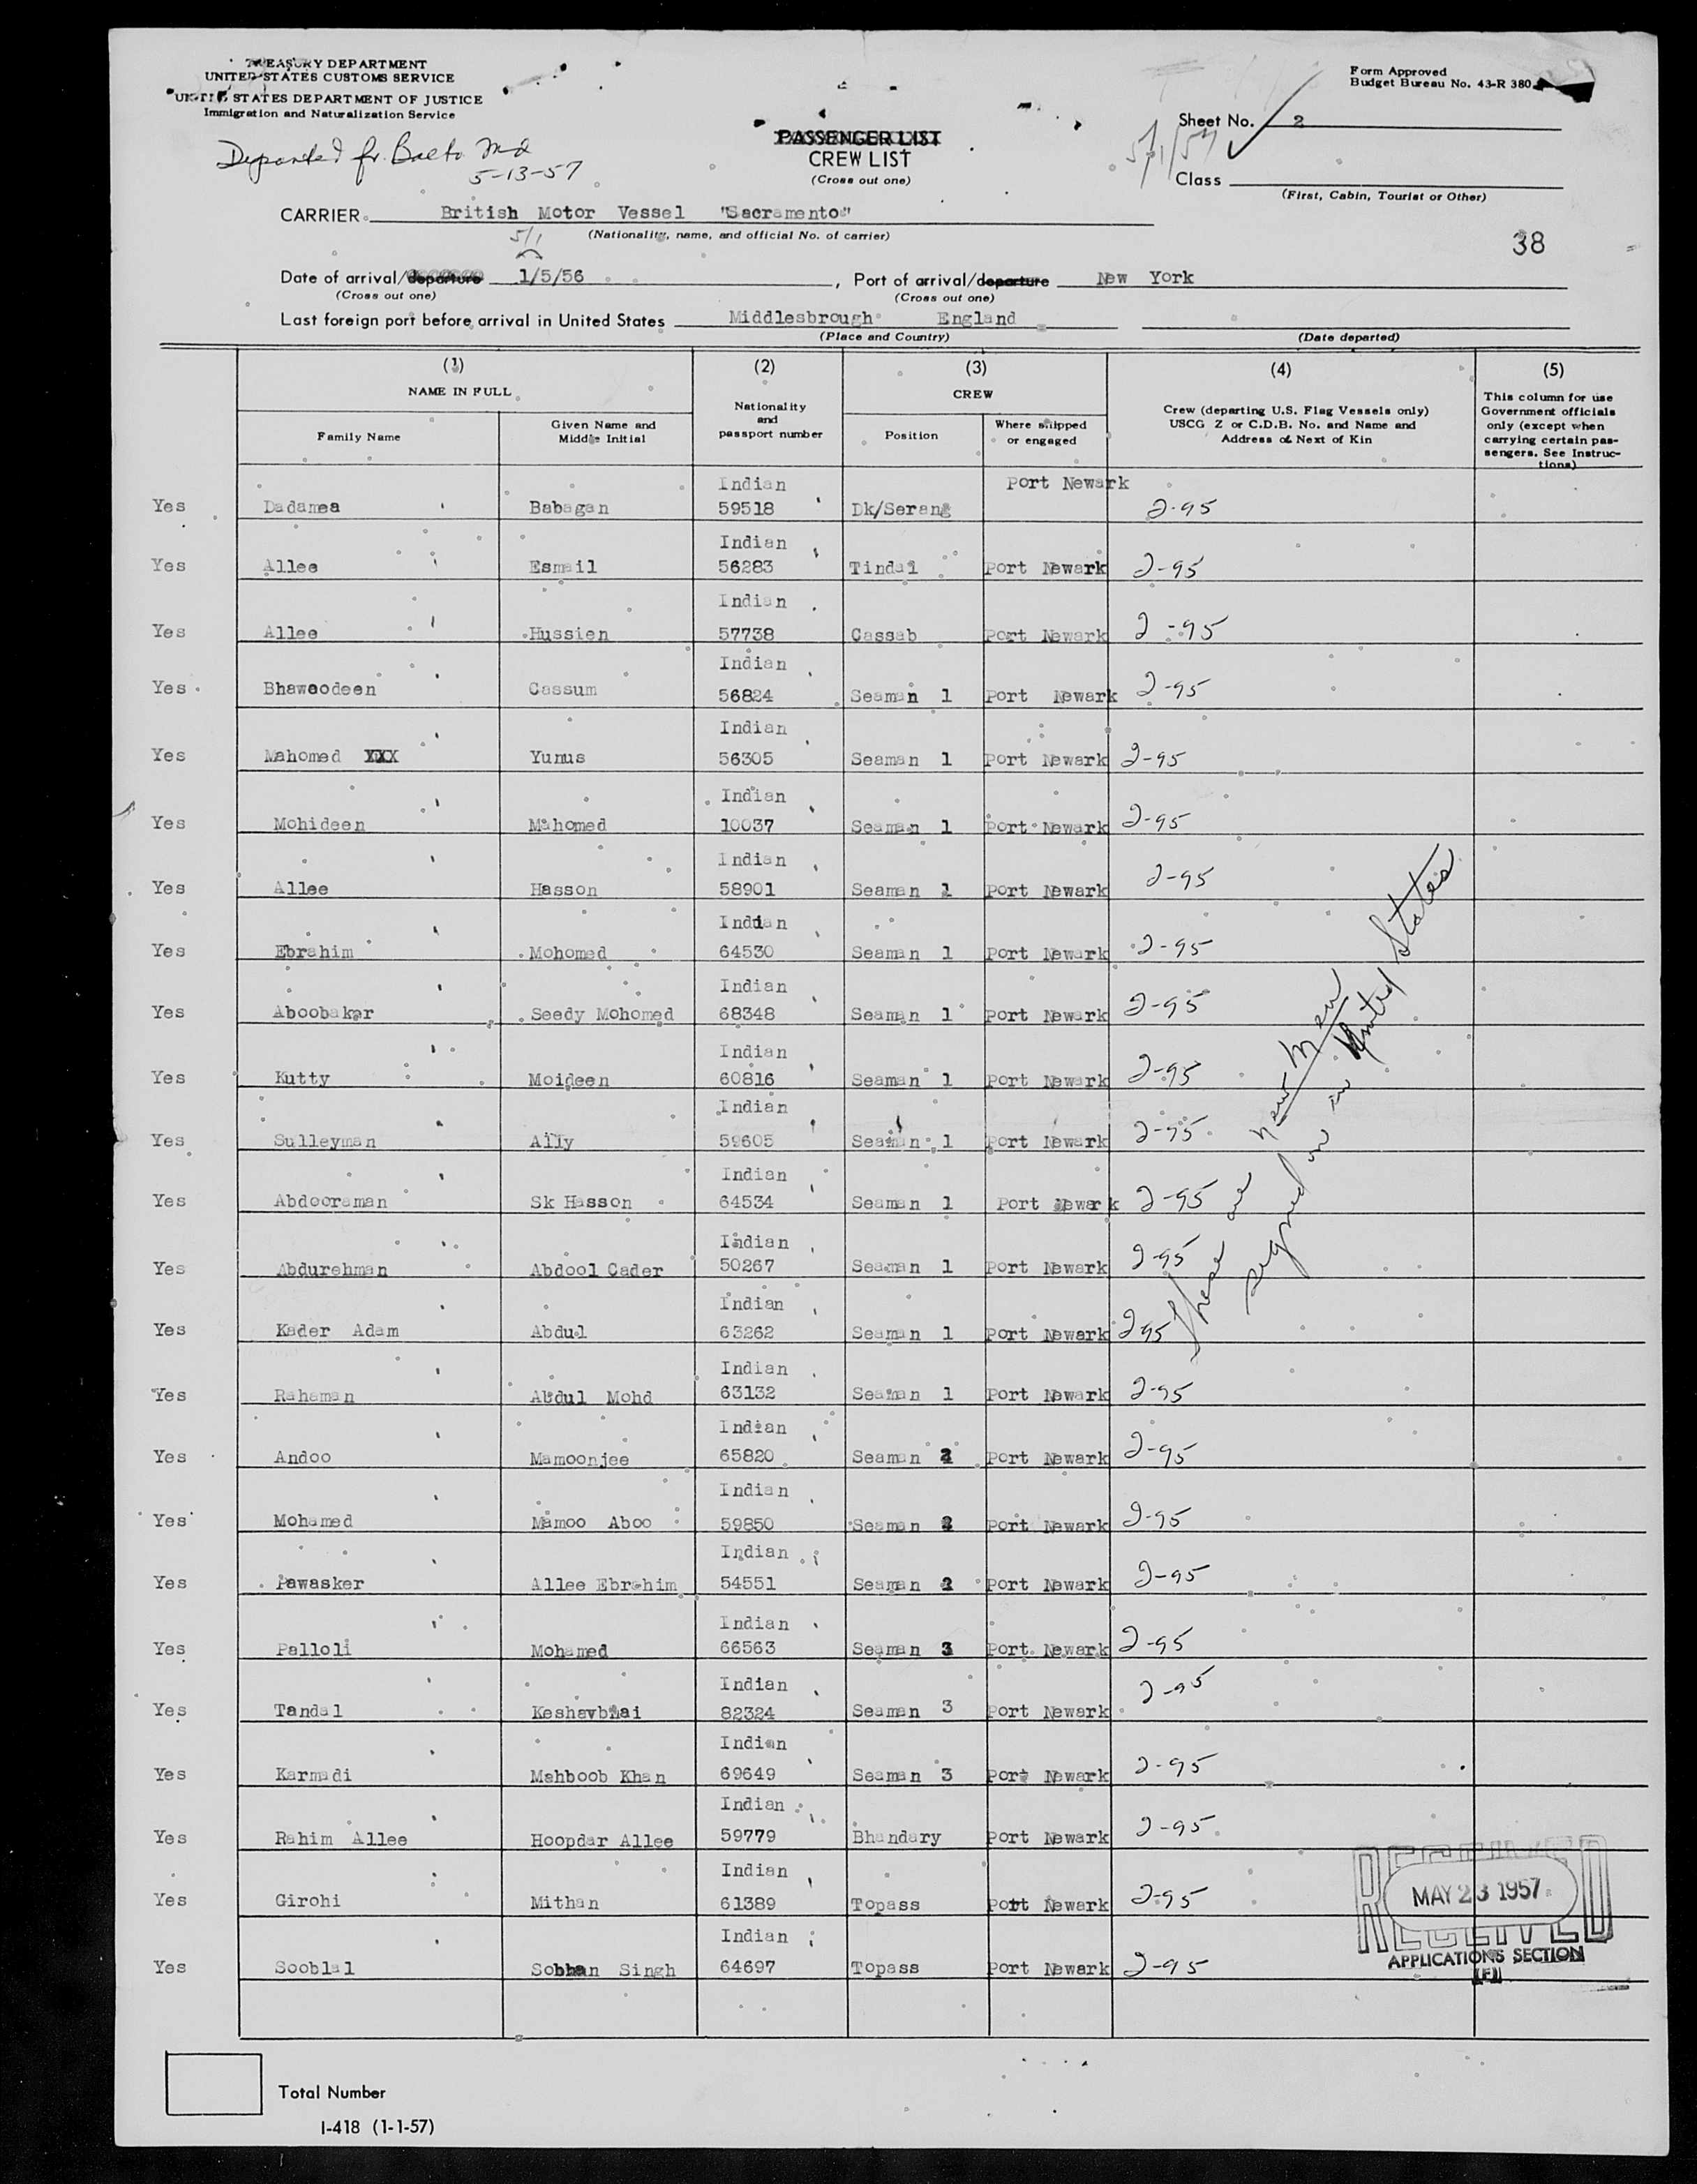 TREASURY DEPARTMENT
UNITED STATES CUSTOMS SERVICE
UNITED STATES DEPARTMENT OF JUSTICE
Immigration and Naturalization Service
Departed fr. Balto Md
5-13-57
PASSENGER LIST
CREW LIST
(Cross out one)
Form Approved
Budget Bureau No. 43-R 380
Sheet No. 2
5/1/57
Class
(First, Cabin, Tourist or Other)
CARRIER British Motor Vessel "Sacramento"
(Nationality, name, and official No. of carrier)
38
5/1
Date of arrival/departure 1/5/56, Port of arrival/departure New York
(Cross out one) (Cross out one)
Last foreign port before arrival in United States Middlesbrough England
(Place and Country) (Date departed)
(1) (2) (3) (4) (5)
NAME IN FULL
Family Name
Given Name and Middle Initial
Nationality and passport number
CREW
Position
Where shipped or engaged
Crew (departing U.S. Flag Vessels only)
USCG Z or C.D.B. No. and Name and
Address of Next of Kin
This column for use
Government officials
only (except when
carrying certain pas-
sengers. See Instruc-
tions)
Yes Dadamea Babagan Indian 59518 Dk/Serang Port Newark 2-95
Yes Allee Esmail Indian 56283 Tindal Port Newark 2-95
Yes Allee Hussien Indian 57738 Cassab Port Newark 2-95
Yes Bhaweodeen Cassum Indian 56824 Seaman 1 Port Newark 2-95
Yes Mahomed XXX Yunus Indian 56305 Seaman 1 Port Newark 2-95
Yes Mohideen Mahomed Indian 10037 Seaman 1 Port Newark 2-95
Yes Allee Hasson Indian 58901 Seaman 1 Port Newark 2-95
Yes Ebrahim Mohomed Indian 64530 Seaman 1 Port Newark 2-95
Yes Aboobaker Seedy Mohomed Indian 68348 Seaman 1 Port Newark 2-95
Yes Kutty Moideen Indian 60816 Seaman 1 Port Newark 2-95
Yes Sulleyman Ally Indian 59605 Seaman 1 Port Newark 2-95
Yes Abdooraman Sk Hasson Indian 64534 Seaman 1 Port Newark 2-95
Yes Abdurehman Abdool Cader Indian 50267 Seaman 1 Port Newark 2-95
Yes Kader Adam Abdul Indian 63262 Seaman 1 Port Newark 295
Yes Rahaman Abdul Mohd Indian 63132 Seaman 1 Port Newark 2-95
Yes Andoo Mamoonjee Indian 65820 Seaman 2 Port Newark 2-95
Yes Mohamed Mamoo Aboo Indian 59850 Seaman 2 Port Newark 2-95
Yes Pawasker Allee Ebrahim Indian 54551 Seaman 2 Port Newark 2-95
Yes Palloli Mohamed Indian 66563 Seaman 3 Port Newark 2-95
Yes Tandal Keshavbhai Indian 82324 Seaman 3 Port Newark 2-95
Yes Karmadi Mahboob Khan Indian 69649 Seaman 3 Port Newark 2-95
Yes Rahim Allee Hoopdar Allee Indian 59779 Bhandary Port Newark 2-95
Yes Girohi Mithan Indian 61389 Topass Port Newark 2-95
Yes Sooblal Sobhan Singh Indian 64697 Topass Port Newark 2-95
These are new men
signed on in United States
RECEIVED
MAY 23 1957
RECEIVED
APPLICATIONS SECTION
Total Number
I-418 (1-1-57)